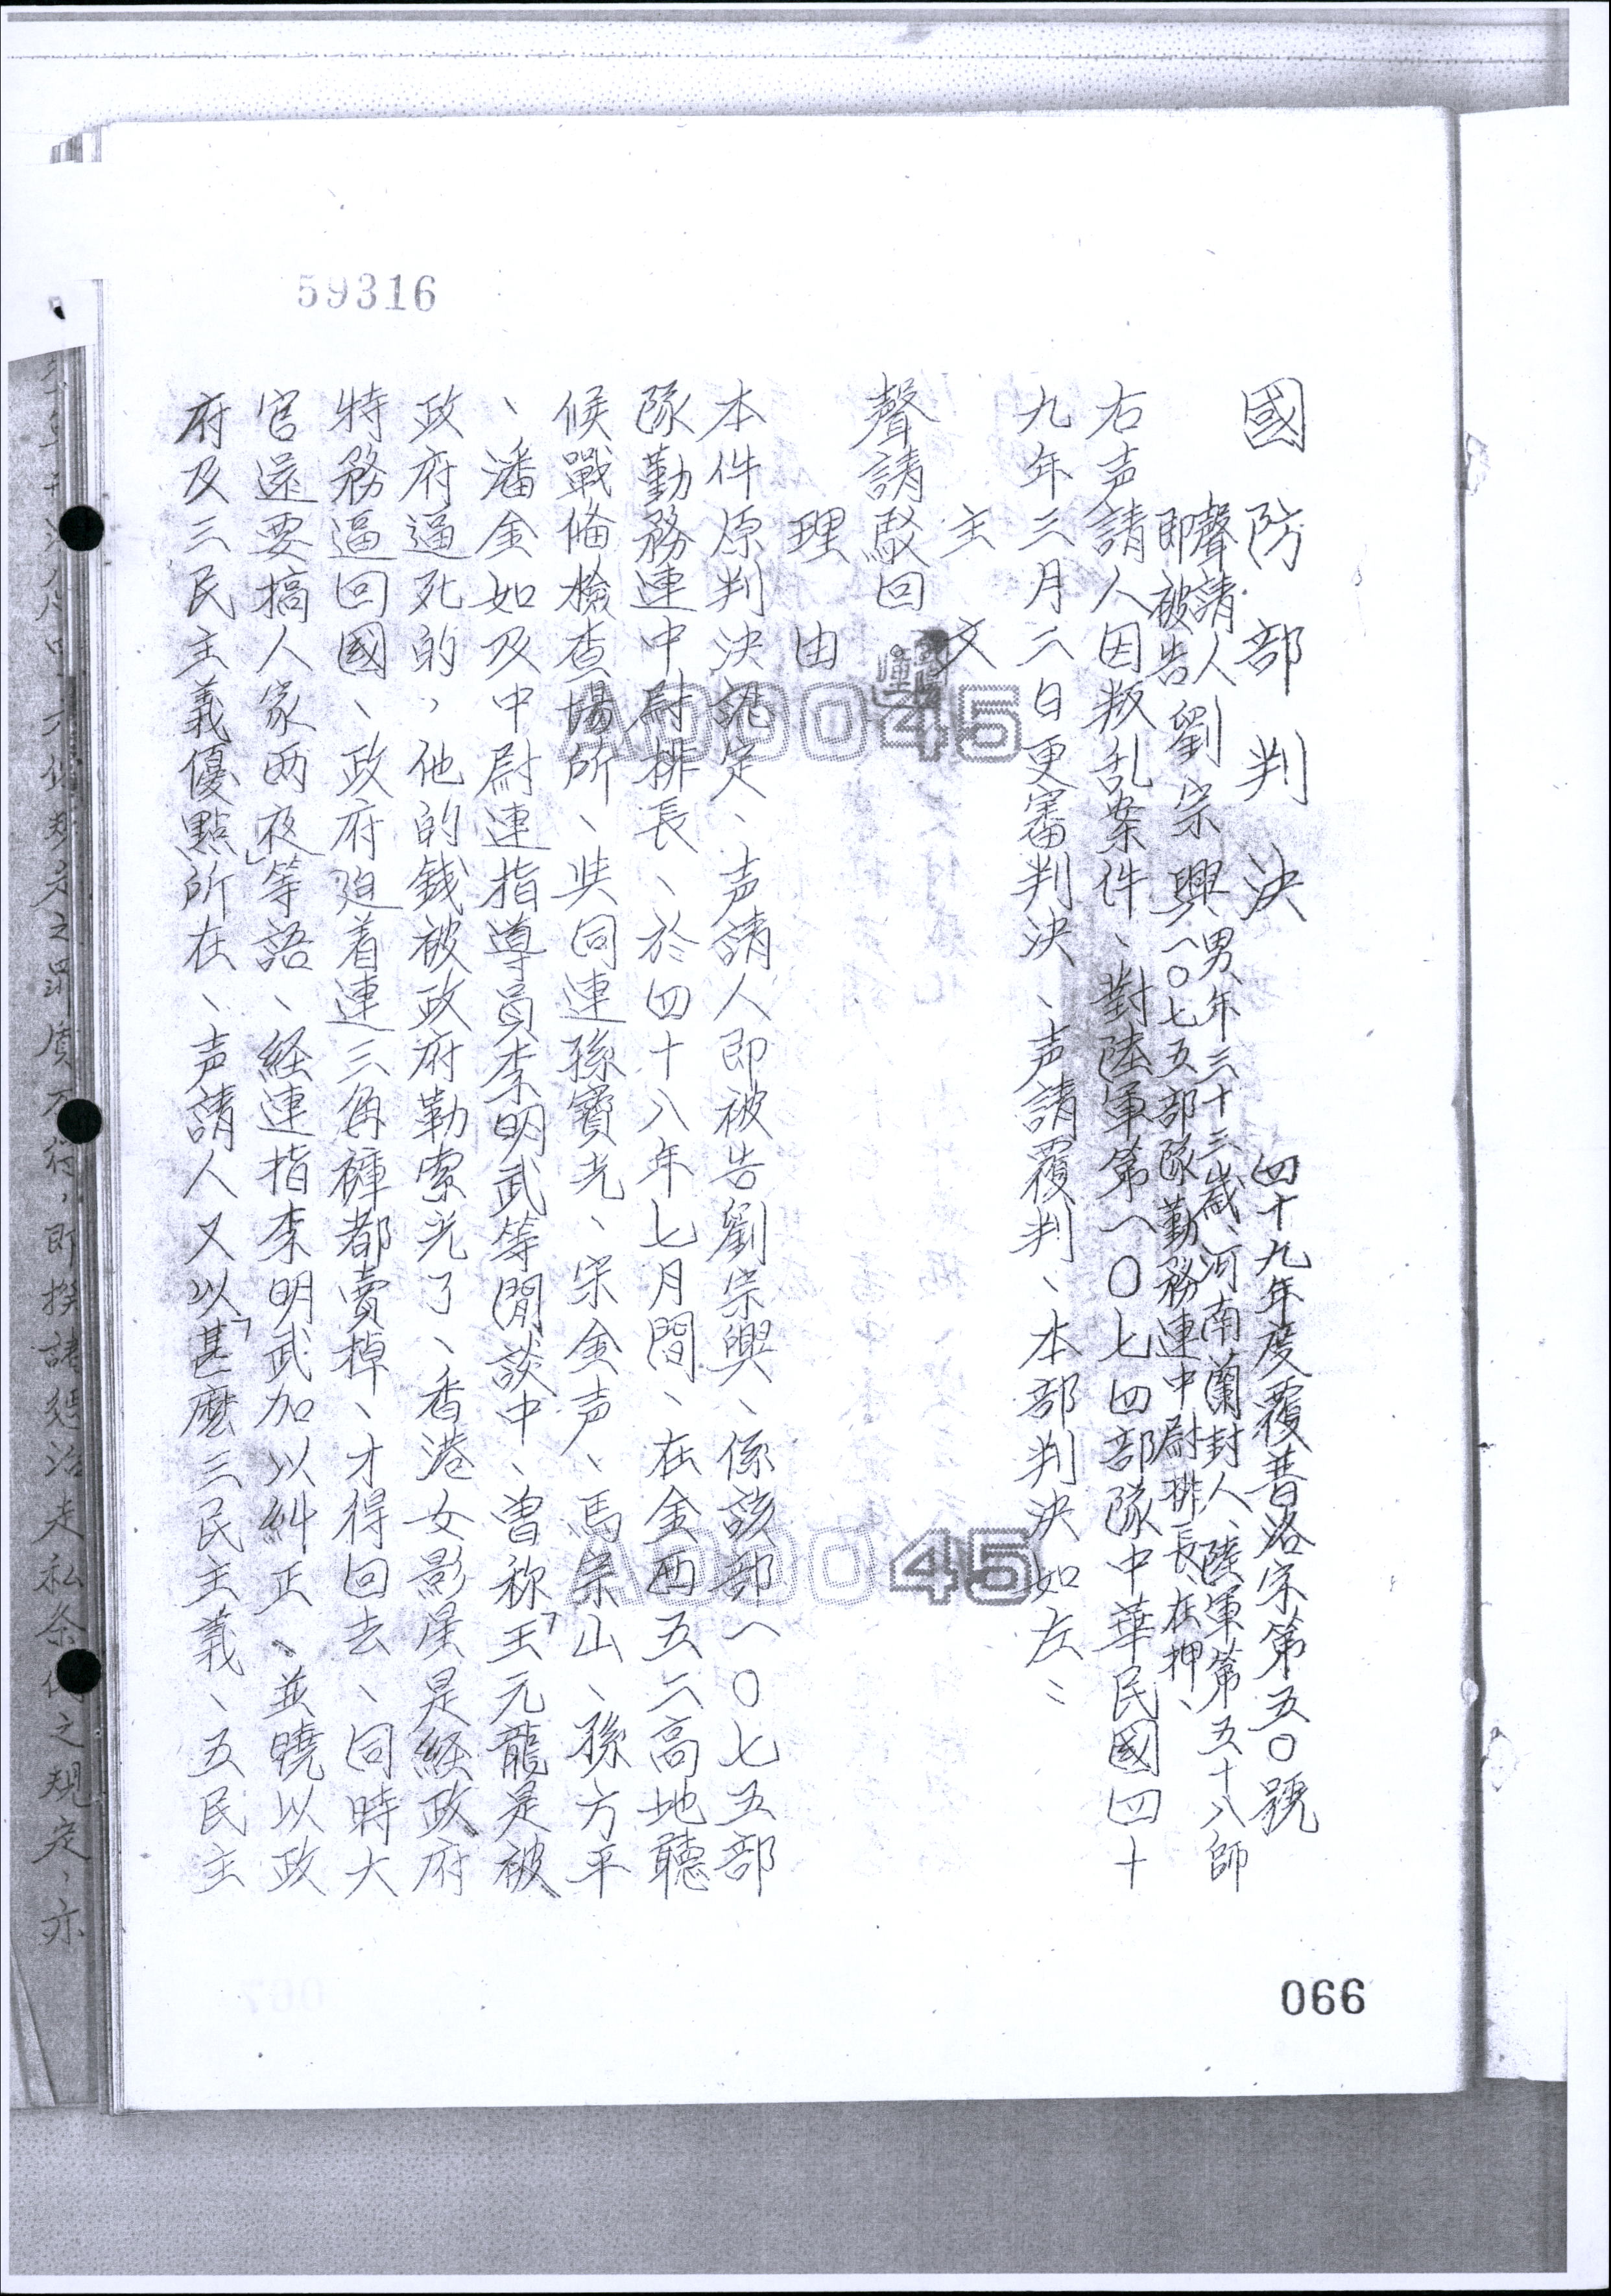 59316
國防部判決
四十九年度覆普洛宗第五〇號
聲請人
即被告
劉宗興
男年三十三歲、河南蘭封人、陸軍第五十八師
一〇七五部隊勤務連中尉排長、在押、
右声請人因叛乱案件、對陸軍第一〇七四部隊中華民國四十
九年三月二日更審判決、声請覆判、本部判決如左：
主文
聲請駁回
理由
本件原判決認定、声請人即被告劉宗興、係該部一〇七五部
隊勤務連中尉排長、於四十八年七月間、在金西五二高地聽
候戰俻檢查場所、與同連孫寶光、宋金声、馬宗山、孫方平
、潘金如及中尉連指導員李明武等閒談中、曾称「王元龍是被
政府逼死的，他的錢被政府勒索光了、香港女影星是経政府
特務逼回國、政府迫着連三角褲都賣掉、才得回去、同時大
官還要搞人家两夜」等語、経連指李明武加以糾正、並曉以政
府及三民主義優點所在、声請人又以「甚麼三民主義、五民主
A00045
A00045
066